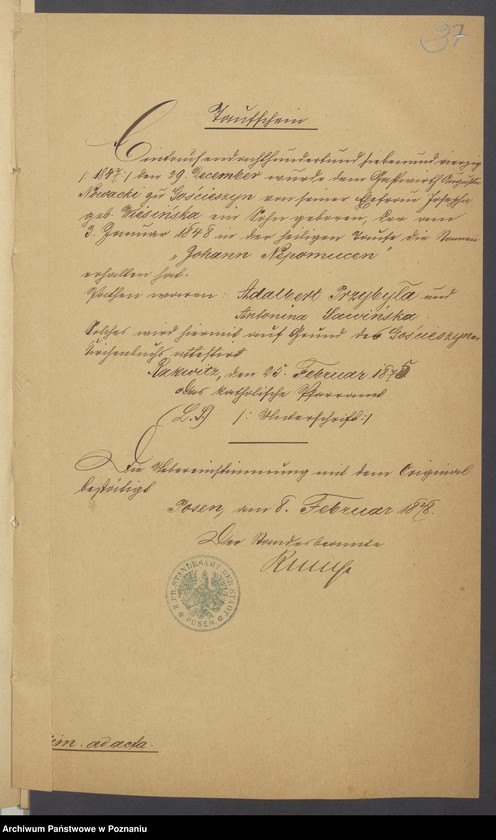 37
Taufschein
Eintausendachthundertundsiebenundvierzig
/:1847:/ den 29. December wurde dem Gastwirth Augustin
Nowacki zu Gościeszyn von seiner Ehefrau Josepha
geb. ein Sohn geboren, der am
3. Januar 1848 in der heiligen Taufe die Namen
„Johann Nepomucen“
erhalten hat.
Pathen waren: Adalbert Przybyła und
Antonina
Solches wird hiermit auf Grund des Gościeszyner
Kirchenbuchs attestirt
Rakwitz, den 25. Februar 1875
das katholische Pfarramt
(L. S.) /: Unterschrift :/
Die Uebereinstimmung mit dem Original
bestätigt
Posen, am 8. Februar 1878.
Der Standesbeamte
K. PR. STANDESAMT DER STADT
POSEN
ad acta.
Archiwum Państwowe w Poznaniu